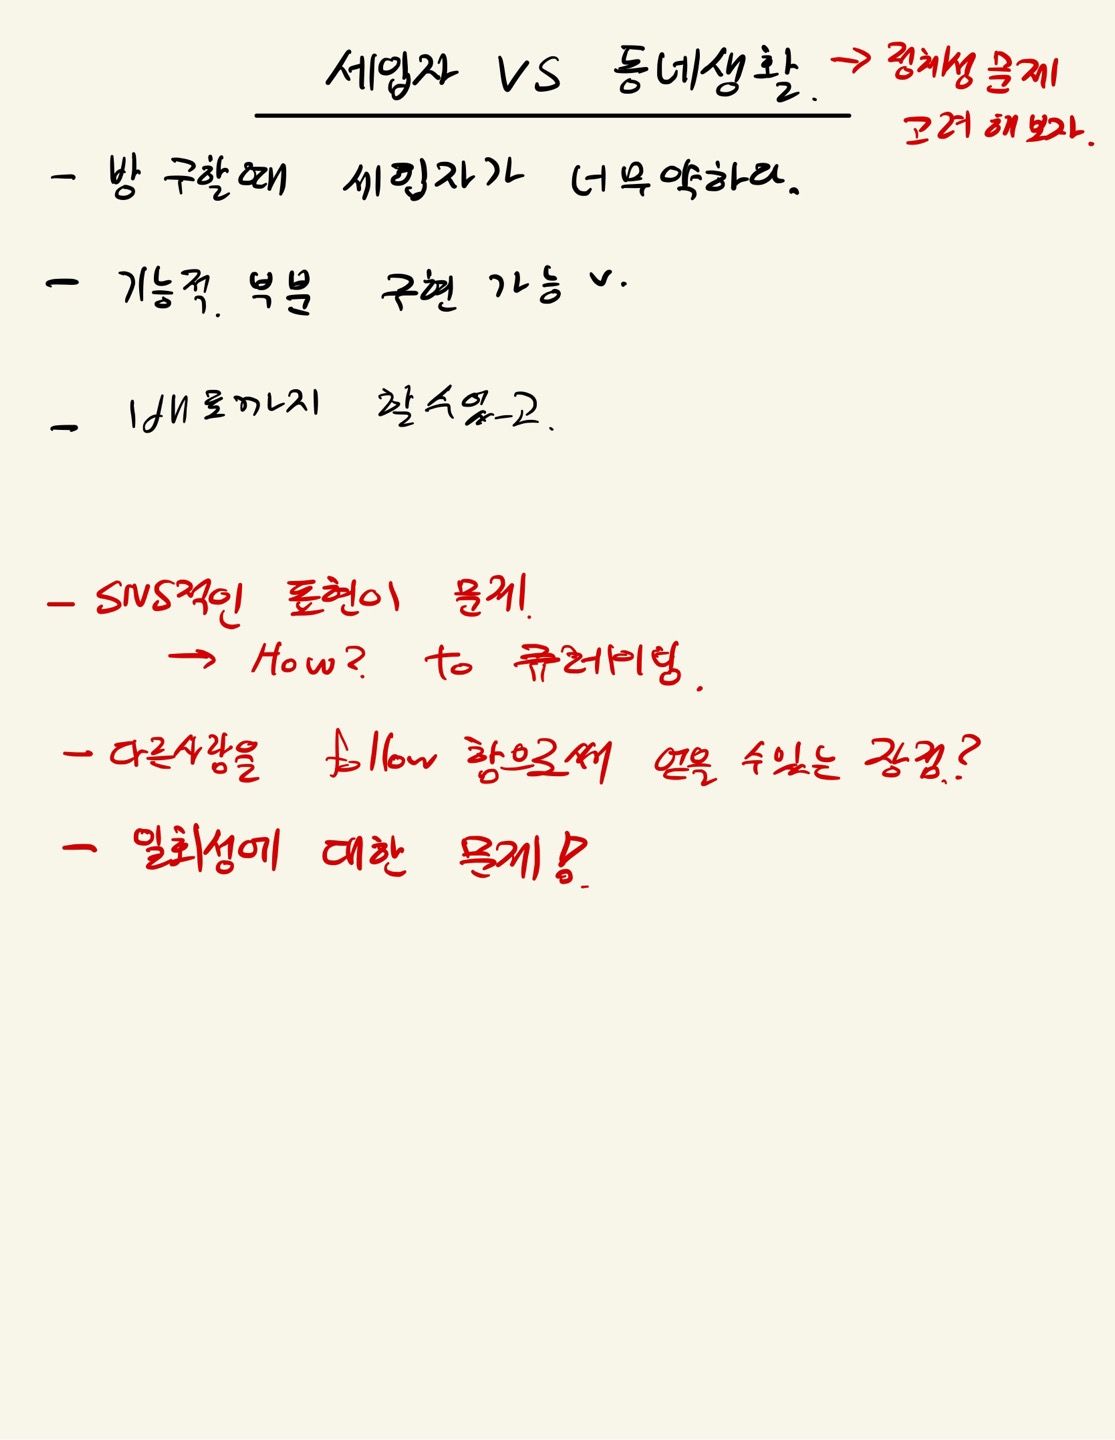 세입자 VS 동네생활. → 정체성 문제
고려해보자.
- 방 구할때 세입자가 너무 약하다.
- 기능적. 부분 구현 가능 v.
- 까지 할수있고.
- SNS적인 표현이 문제.
→ How? to 큐레이팅.
- 다른사람을 follow 함으로써 얻을 수있는 장점.?
- 일회성에 대한 문제!